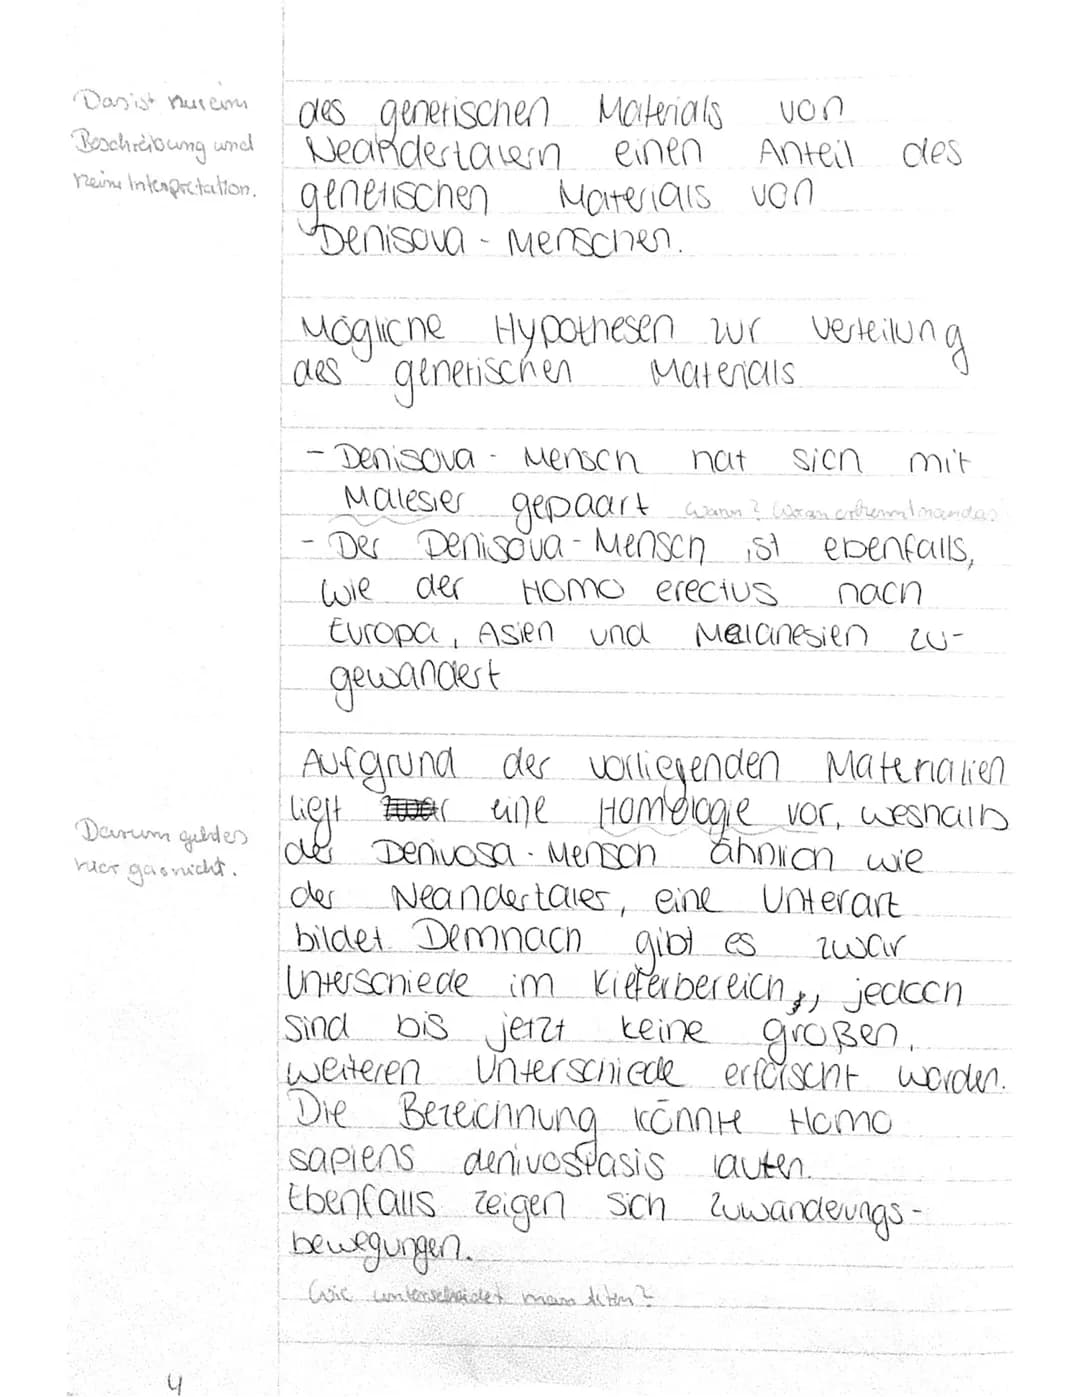 Das ist nur eine
Beschreibung und
keine Interpretation.
des genetischen Materials von
Neandertalern einen Anteil des
genetischen Materials von
Denisova - Menschen.
Mögliche Hypothesen zur Verteilung
des genetischen Materials
- Denisova - Mensch hat sich mit
Malesier gepaart Wann? Woran erkennt man das?
- Der Denisova - Mensch ist ebenfalls,
wie der Homo erectus nach
Europa, Asien und Melanesien zu-
gewandert
Aufgrund der vorliegenden Materialien
liegt eine Homologie vor, weshalb
der Denivosa - Mensch ähnlich wie
der Neandertaler, eine Unterart
bildet. Demnach gibt es zwar
Unterschiede im Kieferbereich, jedoch
sind bis jetzt keine großen,
weiteren Unterschiede erforscht worden.
Die Bezeichnung könnte Homo
sapiens denivosasis lauten.
Ebenfalls zeigen sich Zuwanderungs-
bewegungen.
Darum geht es
hier gar nicht.
Wie unterscheidet man Arten?
4